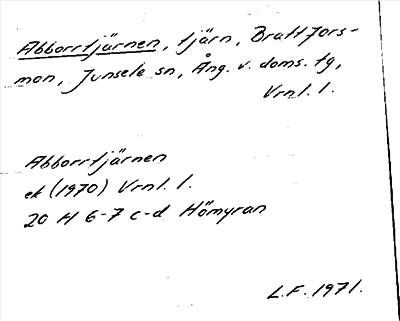 Abborrtjärnen, tjärn, Brattfors-
mon, Junsele sn, Ång. v. doms. tg,
Vrnl. 1.
Abborrtjärnen
ek (1970) Vrnl. 1.
20 H 6-7 c-d Hömyran
L.F. 1971.